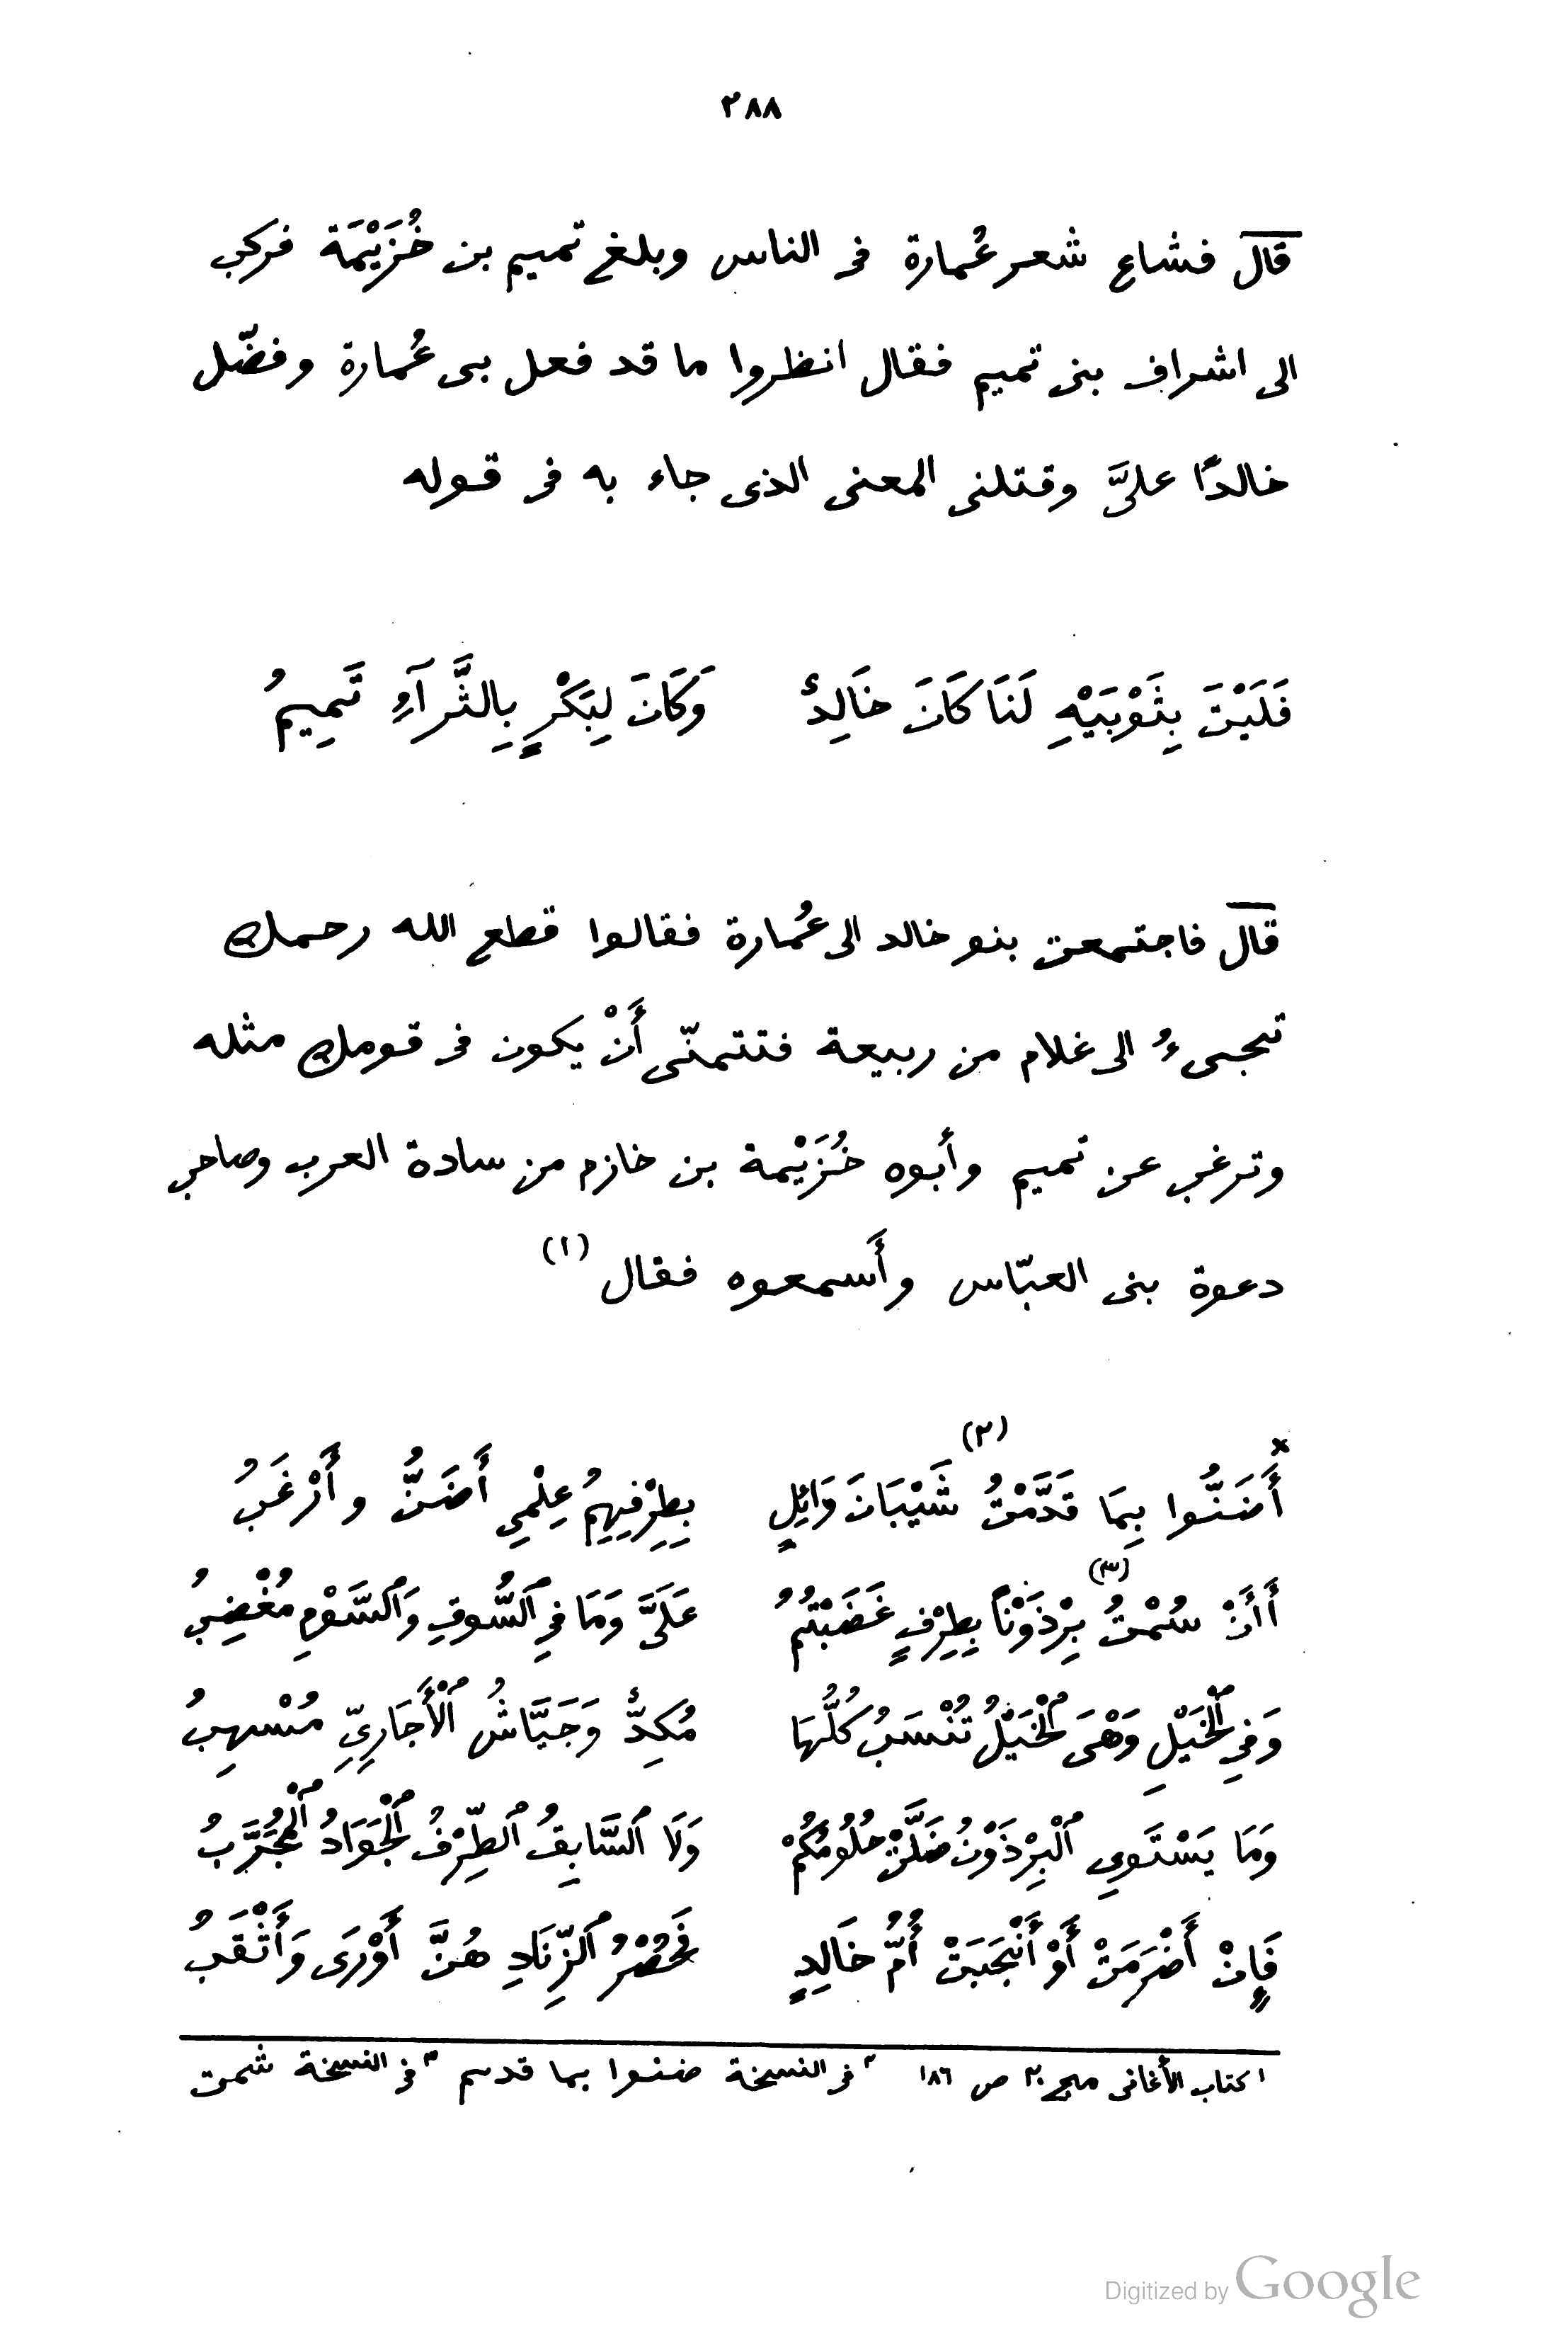 ٢٨٨
قال فشاع شعر عُمارة فى الناس وبلغ تميم بن خُزَيْمَة فركب
الى اشراف بنى تميم فقال انظروا ما قد فعل بى عُمارة وفضّل
خالدًا علىَّ وقتلنى المعنى الذى جاء به فى قوله
فَلَيْتَ بِثَوْبَيْهِ لَنَا كَانَ خَالِدٌ وَكَانَ لِبَكْرٍ بِالثَّرَآءِ تَمِيمُ
قال فاجتمعت بنو خالد الى عُمارة فقالوا قطع الله رحمك
تجىءُ الى غلام من ربيعة فتتمنّى أَنْ يكون فى قومك مثله
وترغب عن تميم وأبوه خُزَيْمة بن خازم من سادة العرب وصاحب
دعوة بنى العبّاس وأَسمعوه فقال (١)
أَضَنُّوا بِمَا قَدَّمْتُ (٢) شَيْبَانَ وَائِلٍ بِطِرْفِيهِمُ عِلْمِي أَضَنُّ وأَرْغَبُ
أَأَنْ سُمْتُ (٣) بِرْذَوْنًا بِطِرْفٍ غَضَبْتُمُ عَلَىَّ وَمَا فِي ٱلسُّوقِ وَٱلسَّوْمِ مُغْضِبُ
وَفِي ٱلْخَيْلِ وَهْىَ ٱلْخَيْلُ تُنْسَبُ كُلُّهَا مُكِدٌّ وَجَيَّاشُ ٱلْأَجَارِيِّ مُسْهِبُ
وَمَا يَسْتَوِي ٱلْبِرْذَوْنُ ضَلَّتْ حُلُومُكُمْ وَلَا ٱلسَّابِقُ ٱلطِّرْفُ ٱلْجَوَادُ ٱلْمُجَرَّبُ
فَإِنْ أَضْرَمَتْ أَوْ أَنْجَبَتْ أُمُّ خَالِدٍ ٱلزِّنَادِ هُنَّ أَوْرَى وَأَثْقَبُ
١ كتاب الأغانى مج ٢٠ ص ١٨٦ ٢ فى النسخة ضنوا بما قدسم ٣ فى النسخة شمت
Digitized by Google